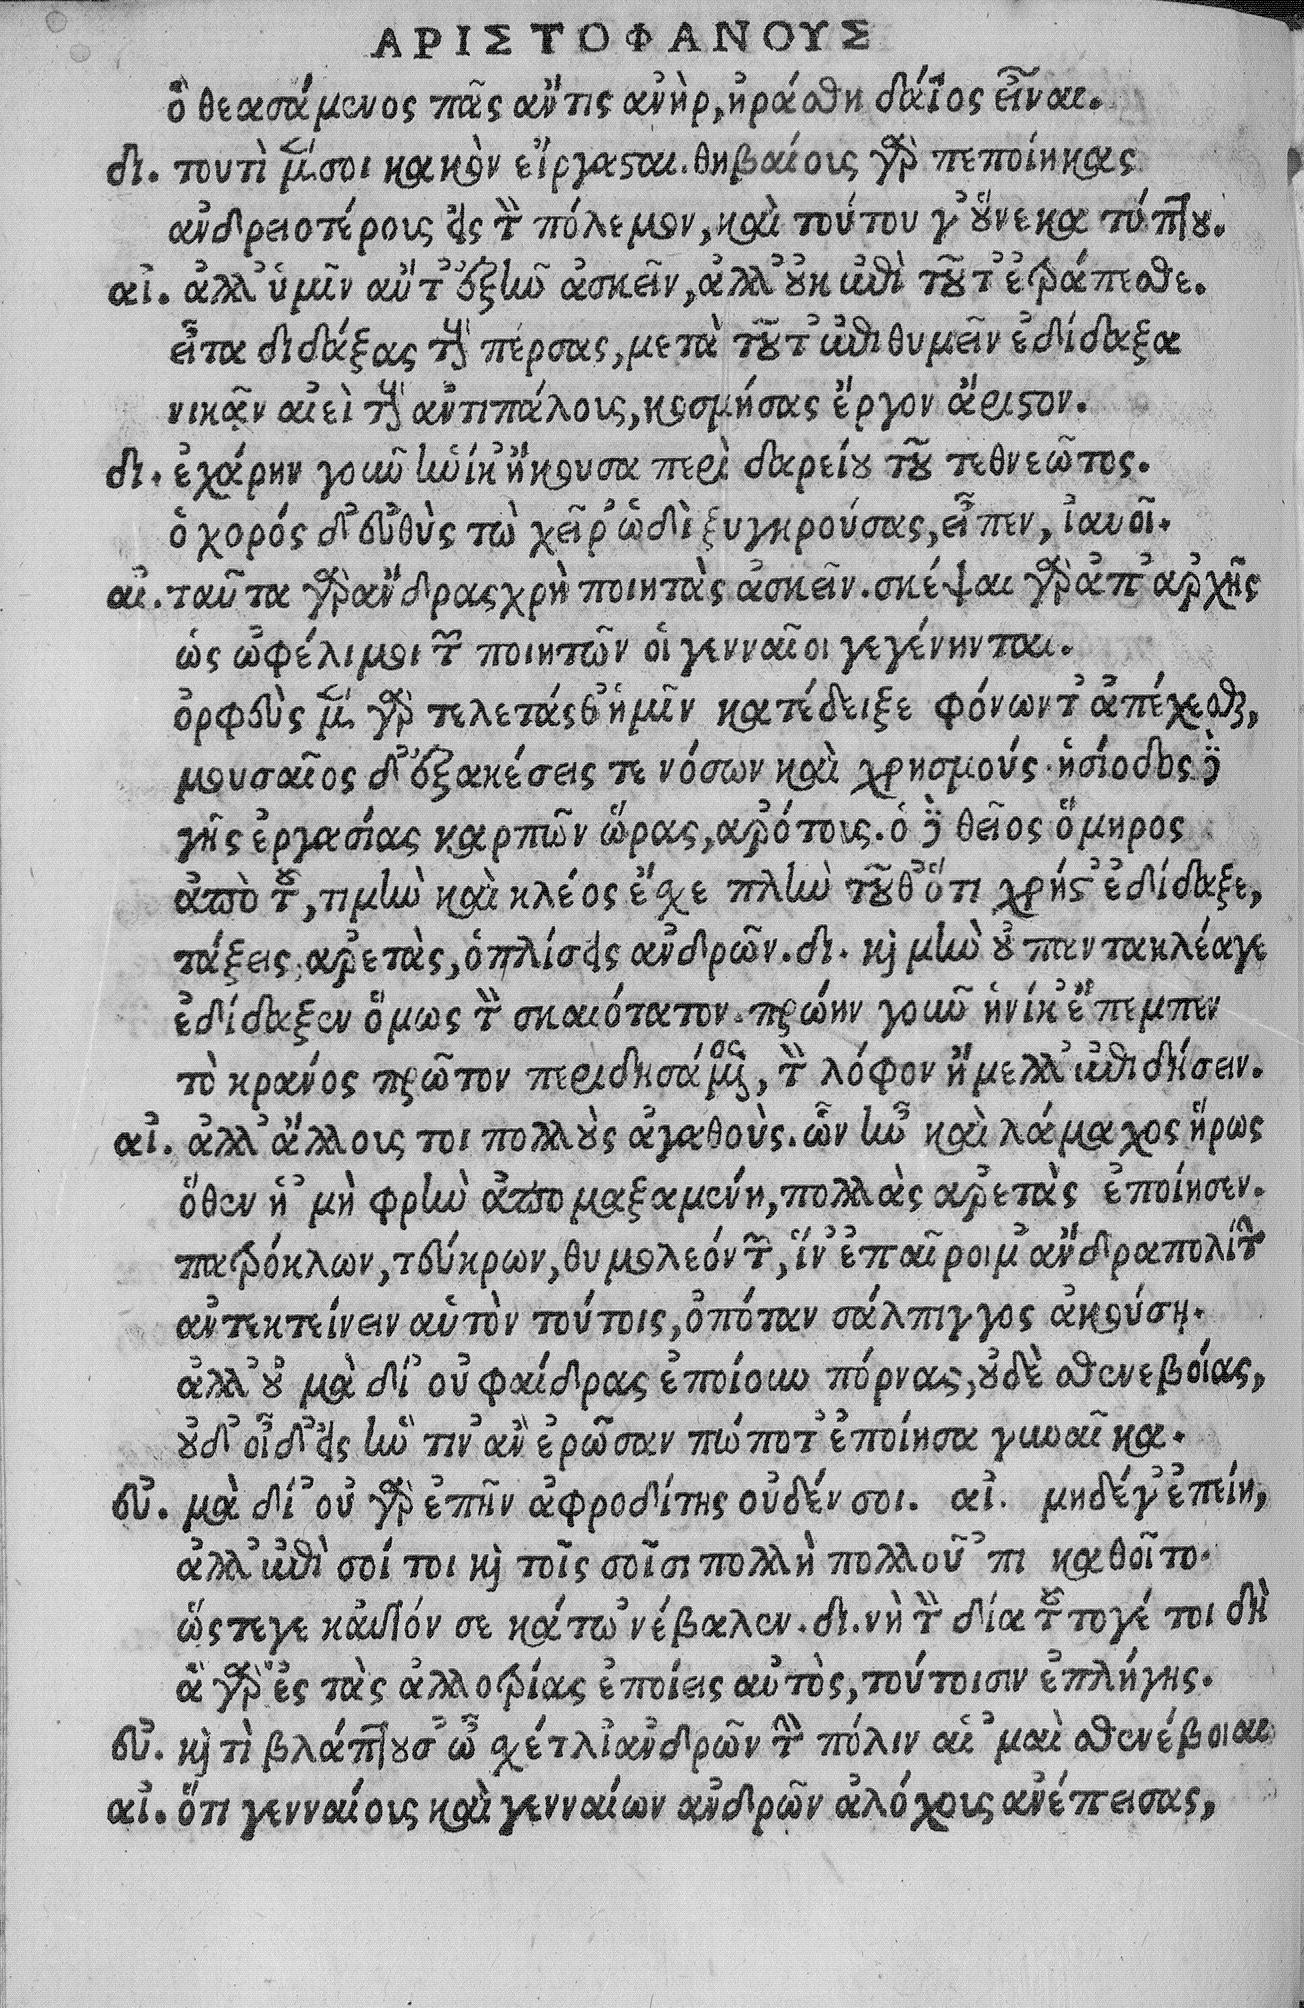 ΑΡΙΣΤΟΦΑΝΟΥΣ
ὃ θεασάμενος πᾶς ἄν τις ἀνὴρ, ἠράσθη δάϊος εἶναι.
δι. τουτὶ μέν σοι κακὸν εἴργασται. θηβαίους γὰρ πεποίηκας
ἀνδρειοτέρους εἰς τὸν πόλεμον, καὶ τούτου γ' οὕνεκα τύπτου.
αἰ. ἀλλ' ὑμῖν αὔτ' ἐξῆν ἀσκεῖν, ἀλλ' οὐκ ἐπὶ τοῦτ' ἐτράπεσθε.
εἶτα διδάξας τοὺς πέρσας, μετὰ τοῦτ' ἐπιθυμεῖν ἐδίδαξα
νικᾶν αἰεὶ τοὺς ἀντιπάλους, κοσμήσας ἔργον ἄριστον.
δι. ἐχάρην γοῦν ἡνίκ' ἤκουσα περὶ δαρείου τοῦ τεθνεῶτος.
ὁ χορός δ' εὐθὺς τὼ χεῖρ' ὡδὶ ξυγκρούσας, εἶπεν, ἰαυοῖ.
αἰ. ταῦτα γὰρ ἄνδρας χρὴ ποιητὰς ἀσκεῖν. σκέψαι γὰρ ἀπ' ἀρχῆς
ὡς ὠφέλιμοι τῶν ποιητῶν οἱ γενναῖοι γεγένηνται.
ὀρφεὺς μὲν γὰρ τελετάς θ' ἡμῖν κατέδειξε φόνων τ' ἀπέχεσθαι,
μουσαῖος δ' ἐξακέσεις τε νόσων καὶ χρησμούς. ἡσίοδος δὲ
γῆς ἐργασίας καρπῶν ὥρας, ἀρότους. ὁ δὲ θεῖος ὅμηρος
ἀπὸ τοῦ, τιμὴν καὶ κλέος ἔσχε πλὴν τοῦθ' ὅτι χρήστ' ἐδίδαξε,
τάξεις, ἀρετὰς, ὁπλίσεις ἀνδρῶν. δι. καὶ μὴν οὐ παντακλέα γε
ἐδίδαξεν ὅμως τὸν σκαιότατον. πρώην γοῦν ἡνίκ' ἔπεμπεν
τὸ κρανός πρῶτον περιδησάμενος, τὸν λόφον ἤμελλ' ἐπιδήσειν.
αἰ. ἀλλ' ἄλλους τοι πολλοὺς ἀγαθοὺς. ὧν ἦν καὶ λάμαχος ἥρως
ὅθεν ἡ 'μὴ φρὴν ἀπομαξαμένη, πολλὰς ἀρετὰς ἐποίησεν.
πατρόκλων, τεύκρων, θυμολεόντων, ἵν' ἐπαῖροιμ' ἄνδρα πολίτην
ἀντεκτείνειν αὑτὸν τούτοις, ὁπόταν σάλπιγγος ἀκούσῃ.
ἀλλ' οὐ μὰ δί' οὐ φαίδρας ἐποίουν πόρνας, οὐδὲ σθενεβοίας,
οὐδ' οἶδ' εἰς ἣν τιν' ἂν ἐρῶσαν πώποτ' ἐποίησα γυναῖκα.
εὐ. μὰ δί' οὐ γὰρ ἐπῆν ἀφροδίτης οὐδέν σοι. αἰ. μηδέ γ' ἐπείη,
ἀλλ' ἐπὶ σοί τοι καὶ τοῖς σοῖσι πολλὴ πολλοῦ 'πι καθοῖτο.
ὥς τε γε καὐτόν σε κάτω 'νέβαλεν. δι. νὴ τὸν δία τοῦτό γέ τοι δὴ
ἃ γὰρ ἐς τὰς ἀλλοτρίας ἐποίεις αὐτὸς, τούτοισιν ἐπλήγης.
εὐ. καὶ τὶ βλάπτουσ' ὦ σχέτλι' ἀνδρῶν τὴν πόλιν αἱ 'μαὶ σθενέβοιαι
αἰ. ὅτι γενναίους καὶ γενναίων ἀνδρῶν ἀλόχους ἀνέπεισας,